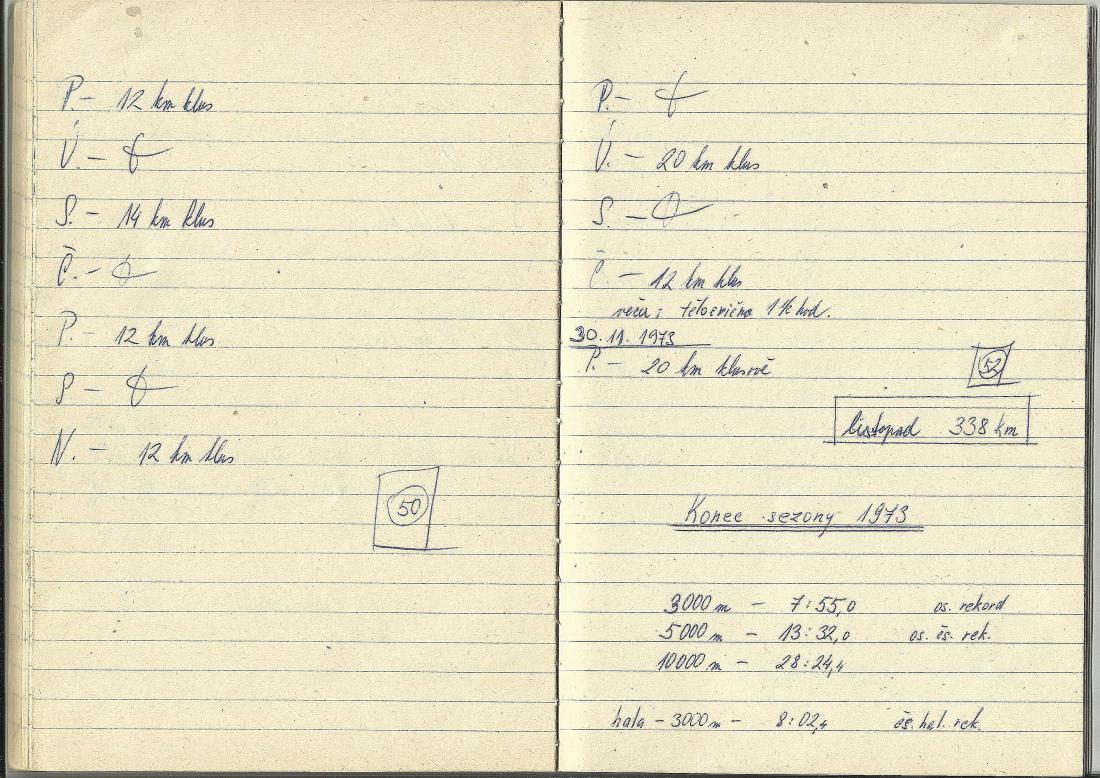 P. - 12 km klus
Ú. - ϕ
S. - 14 km klus
Č. - ϕ
P. - 12 km klus.
S. - ϕ
N. - 12 km klus
50
P. - ϕ
Ú. - 20 km klus
S. - ϕ
Č. - 12 km klus
večer: tělocvična 1½ hod.
30.11.1973
P. - 20 km klusově
52
listopad 338 km
Konec sezony 1973
3000 m - 7:55,0 os. rekord
5000 m - 13:32,0 os. čs. rek.
10000 m - 28:24,4
hala - 3000 m - 8:02,4 čs. hal. rek.